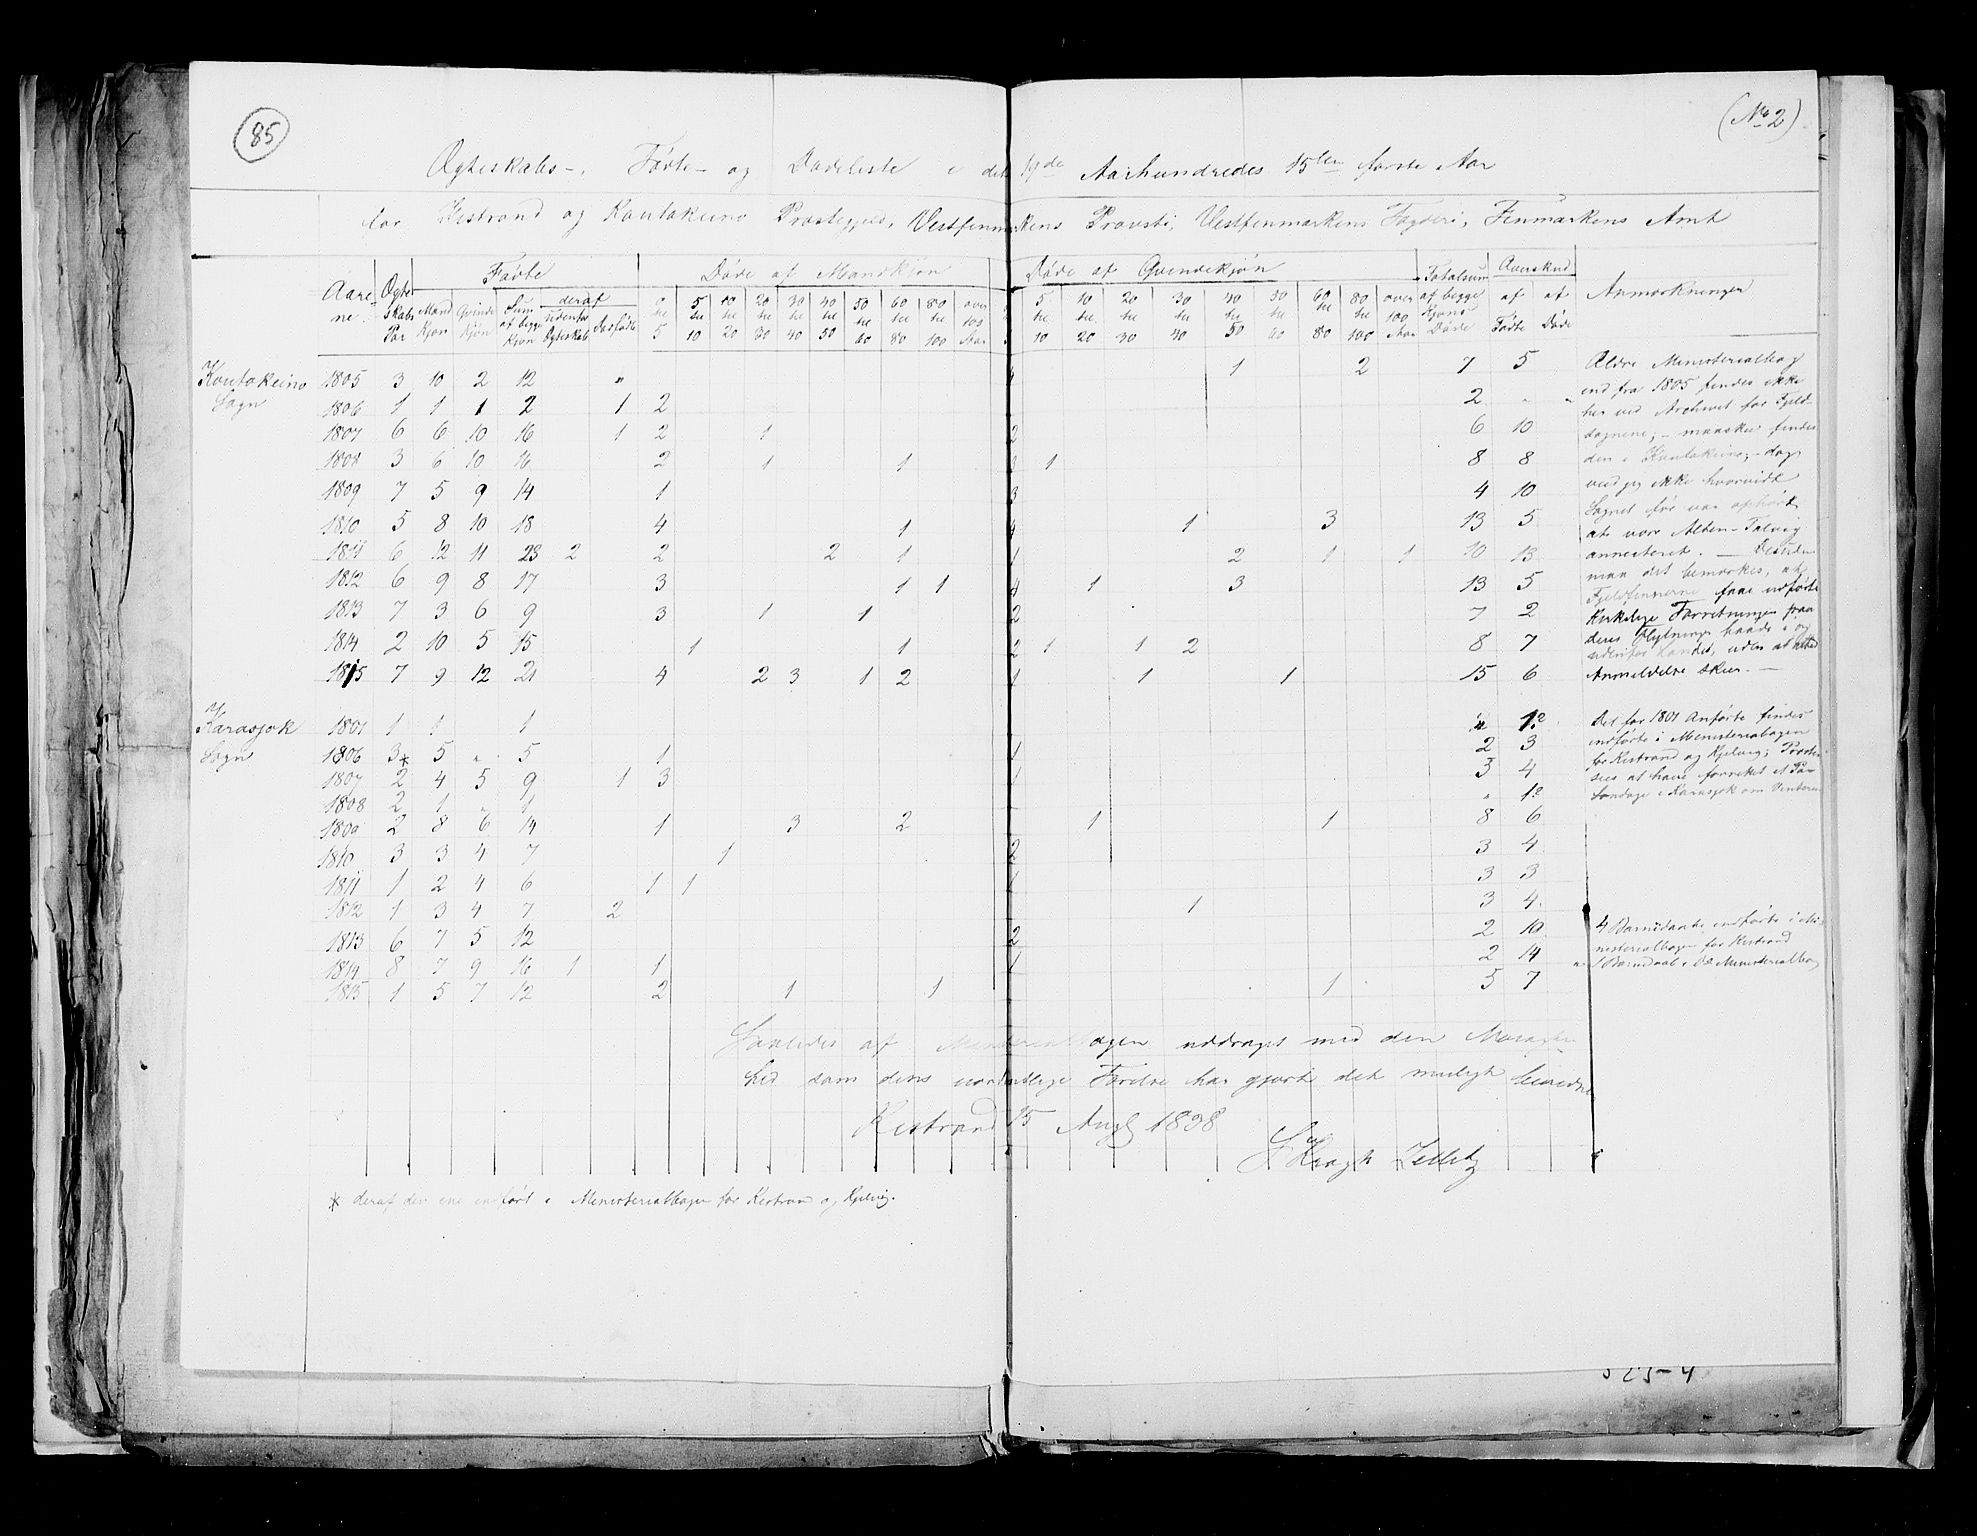 85
(No 2)
Ægteskabs-, Fødte- og Dødeliste i det 19de Aarhundredes 15ten første Aar
for Kistrand og Koutokeino Præstegjeld, Vestfinmarkens Provsti, Vestfinmarkens Fogderi, Finmarkens Amt
Aarene Ægteskabs Par Fødte Døde af Mandkjøn Døde af Qvindekjøn Totalsum af begge Kjøns Døde Overskud Anmærkninger
Mand Kjøn Qvinde Kjøn Sum af begge Kjøn deraf udenfor Ægteskab Dødfødte 0 til 5 5 til 10 10 til 20 20 til 30 30 til 40 40 til 50 50 til 60 60 til 80 80 til 100 over 100 Aar 5 til 10 10 til 20 20 til 30 30 til 40 40 til 50 50 til 60 60 til 80 80 til 100 over 100 Aar af Fødte af Døde
Koutokeino Sogn 1805 3 10 2 12 " 4 1 2 7 5
1806 1 1 1 2 1 2 2 " "
1807 6 6 10 16 1 2 1 2 6 10
1808 3 6 10 16 2 1 1 2 1 8 8
1809 7 5 9 14 1 3 4 10
1810 5 8 10 18 4 1 4 1 3 13 5
1811 6 12 11 23 2 2 2 1 1 2 1 1 10 13
1812 6 9 8 17 3 1 1 4 1 3 13 5
1813 7 3 6 9 3 1 1 2 7 2
1814 2 10 5 15 1 1 2 1 1 2 8 7
1815 7 9 12 21 4 2 3 1 2 1 1 1 15 6
Ældre Ministerialbog
end fra 1805 findes ikke
her ved Archivet for Fjeld-
sognene; - maaskee findes
den i Koutokeino; - dog
veed jeg ikke hvorvidt
Sognet før var ophørt
at være Alten-Talvig
annecteret. — Desuden
maa det bemærkes, at
Fjeldfinnerne faae udførte
kirkelige Forretninger paa
deres Flytninger baade i og
udenfor Landet, uden at altid
Anmeldelse skeer. —
Karasjok Sogn 1801 1 1 1 " 1
1806 3* 5 " 5 1 1 2 3
1807 2 4 5 9 1 3 1 5 4
1808 2 1 " 1 " 1
1809 2 8 6 14 1 3 2 1 1 8 6
1810 3 3 4 7 1 2 3 4
1811 1 2 4 6 1 1 1 3 3
1812 1 3 4 7 2 1 3 4
1813 6 7 5 12 2 2 10
1814 8 7 9 16 1 1 1 2 14
1815 1 5 7 12 2 1 1 1 5 7
Det for 1801 Anførte findes
indførte i Ministerialbogen
for Kistrand og Kjelvig;
sees at have forrettet
Søndage i Karasjok om Vinteren
4 Barnedaab indførte i Mi-
nisterialbogen for Kistrand
1 Barnedaab i D° Ministerialbog
Saaledes af Ministerialbogen uddraget med den Nøiagtig-
hed som dens uordentlige Førelse har gjort det muligt bevidner
Kistrand 15 Augt 1838
Kragh
* deraf den ene indført i Ministerialbogen for Kistrand og Kjelvig.